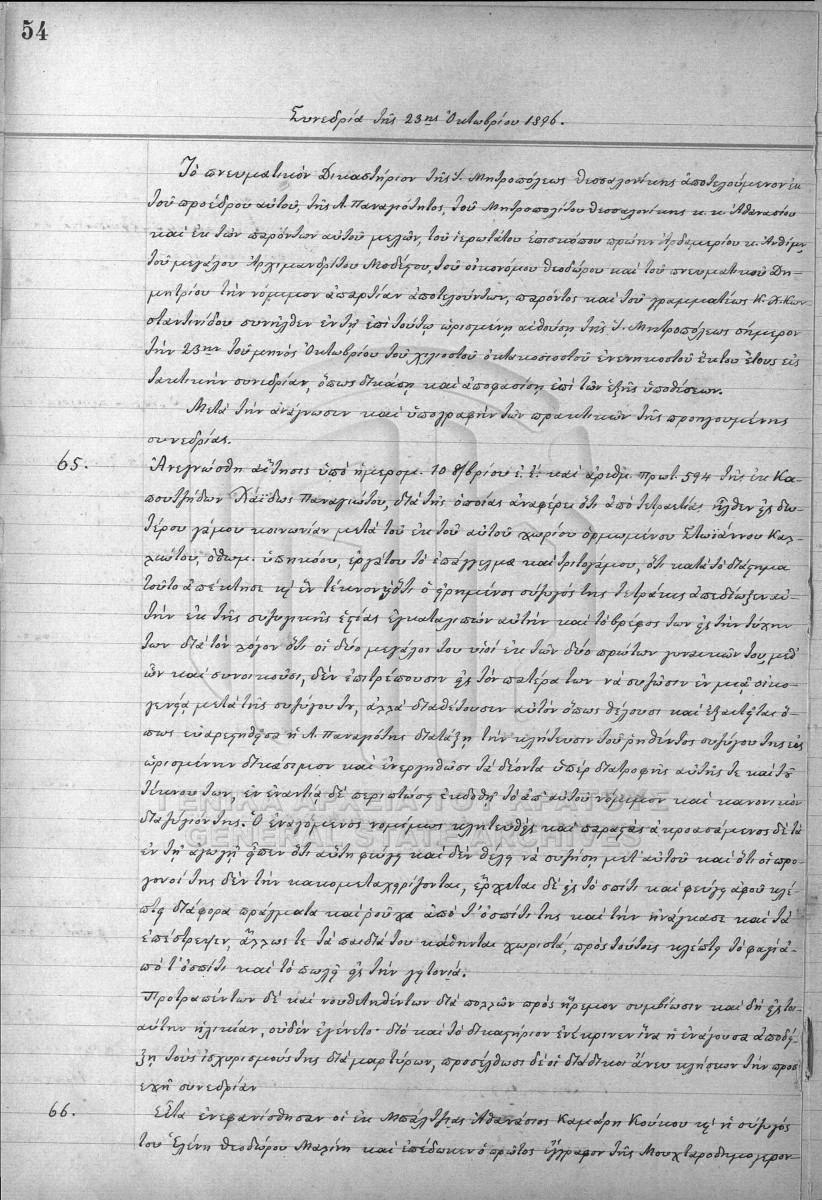 54
Συνεδρία τῆς 23ης Ὀκτωβρίου 1896.
Τὸ πνευματικὸν Δικαστήριον τῆς Ἱ. Μητροπόλεως Θεσσαλονίκης ἀποτελούμενον ἐκ
τοῦ προέδρου αὐτοῦ, τῆς Α. Παναγιότητος, τοῦ Μητροπολίτου Θεσσαλονίκης κ. κ. Ἀθανασίου
καὶ ἐκ τῶν παρόντων αὐτοῦ μελῶν, τοῦ ἱερωτάτου ἐπισκόπου πρώην Ἀρδαμερίου κ. Ἀνθίμου,
τοῦ μεγάλου Ἀρχιμανδρίτου Μοδέστου, τοῦ οἰκονόμου Θεοδώρου καὶ τοῦ πνευματικοῦ Δη-
μητρίου τὴν νόμιμον ἀπαρτίαν ἀποτελούντων, παρόντος καὶ τοῦ γραμματέως Κ. Χ. Κων
σταντινίδου συνῆλθεν ἐν τῇ ἐπὶ τούτῳ ὡρισμένῃ αἰθούσῃ τῆς Ἱ. Μητροπόλεως σήμερον
τὴν 23ην τοῦ μηνὸς Ὀκτωβρίου τοῦ χιλιοστοῦ ὀκτακοσιοστοῦ ἐνενηκοστοῦ ἕκτου ἔτους εἰς
τακτικὴν συνεδρίαν, ὅπως δικάσῃ καὶ ἀποφασίσῃ ἐπὶ τῶν ἑξῆς ὑποθέσεων.
Μετὰ τὴν ἀνάγνωσιν καὶ ὑπογραφὴν τῶν πρακτικῶν τῆς προηγουμένης
συνεδρίας.
65. Ἀνεγνώσθη αἴτησις ὑπὸ ἡμερομ. 10 8/βρίου ἐ. ἔ. καὶ ἀριθμ. πρωτ. 594 τῆς ἐκ Κα-
πουτζήδων Χάϊδως Παναγιώτου, διὰ τῆς ὁποίας ἀναφέρει ὅτι ἀπὸ τετραετίας ἦλθεν εἰς δευ-
τέρου γάμου κοινωνίαν μετὰ τοῦ ἐκ τοῦ αὐτοῦ χωρίου ὁρμωμένου Στωϊάννου Καλ-
κιώτου, ὀθωμ. ὑπηκόου, ἐργάτου τὸ ἐπάγγελμα καὶ τριτογάμου, ὅτι κατὰ τὸ διάστημα
τοῦτο ἀπέκτησε κ' ἓν τέκνον, ὅτι ὁ εἰρημένος σύζυγός της τετράκις ἀπεδίωξεν αὐ-
τὴν ἐκ τῆς συζυγικῆς ἑστίας ἐγκαταλιπὼν αὐτὴν καὶ τὸ βρέφος των εἰς τὴν τύχην
των διὰ τὸν λόγον ὅτι οἱ δύο μεγάλοι του υἱοὶ ἐκ τῶν δύο πρώτων γυναικῶν του, μεθ'
ὧν καὶ συνοικοῦσι, δὲν ἐπιτρέπουσιν εἰς τὸν πατέρα των νὰ συζῶσιν ἐν μιᾷ οἰκο-
γενείᾳ μετὰ τῆς συζύγου του, ἀλλὰ διαθέτουσιν αὐτὸν ὅπως θέλουσι καὶ ἐξαιτεῖται ὅ-
πως εὐαρεστηθεῖσα ἡ Α. Παναγιότης διατάξῃ τὴν κλήτευσιν τοῦ ῥηθέντος συζύγου της εἰς
ὡρισμένην δικάσιμον καὶ ἐνεργηθῶσι τὰ δέοντα ὑπὲρ διατροφῆς αὐτῆς τε καὶ τοῦ
τέκνου των, ἐν ἐναντίᾳ δὲ περιπτώσει ἐκδοθῇ τὸ ἀπ' αὐτοῦ νόμιμον καὶ κανονικὸν
διαζύγιόν της. Ὁ ἐναγόμενος νομίμως κλητευθεὶς καὶ παραστὰς ἀκροασάμενος δὲ τὰ
ἐν τῇ ἀγωγῇ εἶπεν ὅτι αὕτη φεύγει καὶ δὲν θέλει νὰ συζήσῃ μετ' αὐτοῦ καὶ ὅτι οἱ προ-
γονοί της δὲν τὴν κακομεταχειρίζονται, ἔρχεται δὲ εἰς τὸ σπίτι καὶ φεύγει ἀφοῦ κλέ-
πτει διάφορα πράγματα καὶ ροῦχα ἀπὸ τ' ὁσπίτι της καὶ τὴν ἠνάγκασε καὶ τὰ
ἐπέστρεψεν, ἄλλως τε τὰ παιδιά του κάθηνται χωριστά, πρὸς τούτοις κλέπτει τὸ φαγὶ ἀ-
πὸ τ' ὁσπίτι καὶ τὸ πωλεῖ εἰς τὴν γειτονιά.
Προτραπέντων δὲ καὶ νουθετηθέντων διὰ πολλῶν πρὸς ἤρεμον συμβίωσιν καὶ δὴ εἰς τοι-
αύτην ἡλικίαν, οὐδὲν ἐγένετο· διὸ καὶ τὸ δικαστήριον ἐνέκρινεν ἵνα ἡ ἐνάγουσα ἀποδεί-
ξῃ τοὺς ἰσχυρισμούς της διὰ μαρτύρων, προσέλθωσι δὲ οἱ διάδικοι ἄνευ κλήσεων τὴν προσ
εχῆ συνεδρίαν
66. Εἶτα ἐνεφανίσθησαν οἱ ἐκ Μπάλτζας Ἀθανάσιος Καμάρη Κούκου κ' ἡ σύζυγός
του Ἑλένη Θεοδώρου Μαλίνη καὶ ἐπέδωκεν ὁ πρῶτος ἔγγραφον τῆς Μουχταροδημογερον-
ΓΕΝΙΚΑ ΑΡΧΕΙΑ ΤΟΥ ΚΡΑΤΟΥΣ
GENERAL STATE ARCHIVES